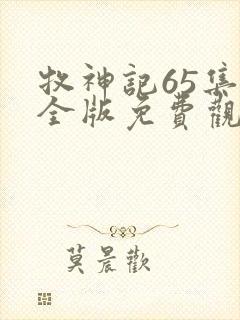 牧神記65集
全版免費觀
莫晨歡